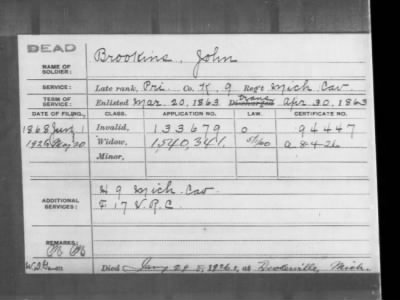 DEAD
NAME OF SOLDIER: Brookins, John
SERVICE: Late rank, Pri Co. K, 9 Reg't Mich Cav.
TERM OF SERVICE: Enlisted Mar. 20, 1863 Discharged trans Apr. 30, 1863
DATE OF FILING. CLASS. APPLICATION NO. LAW. CERTIFICATE NO.
1868 Invalid, 133679 94447
1926 May 20 Widow, 1,540,341 a. 8-4-26
Minor,
ADDITIONAL SERVICES: H 9 Mich Cav
F 17 V.R.C
REMARKS:
Died Jany 29 1926, at Mich.